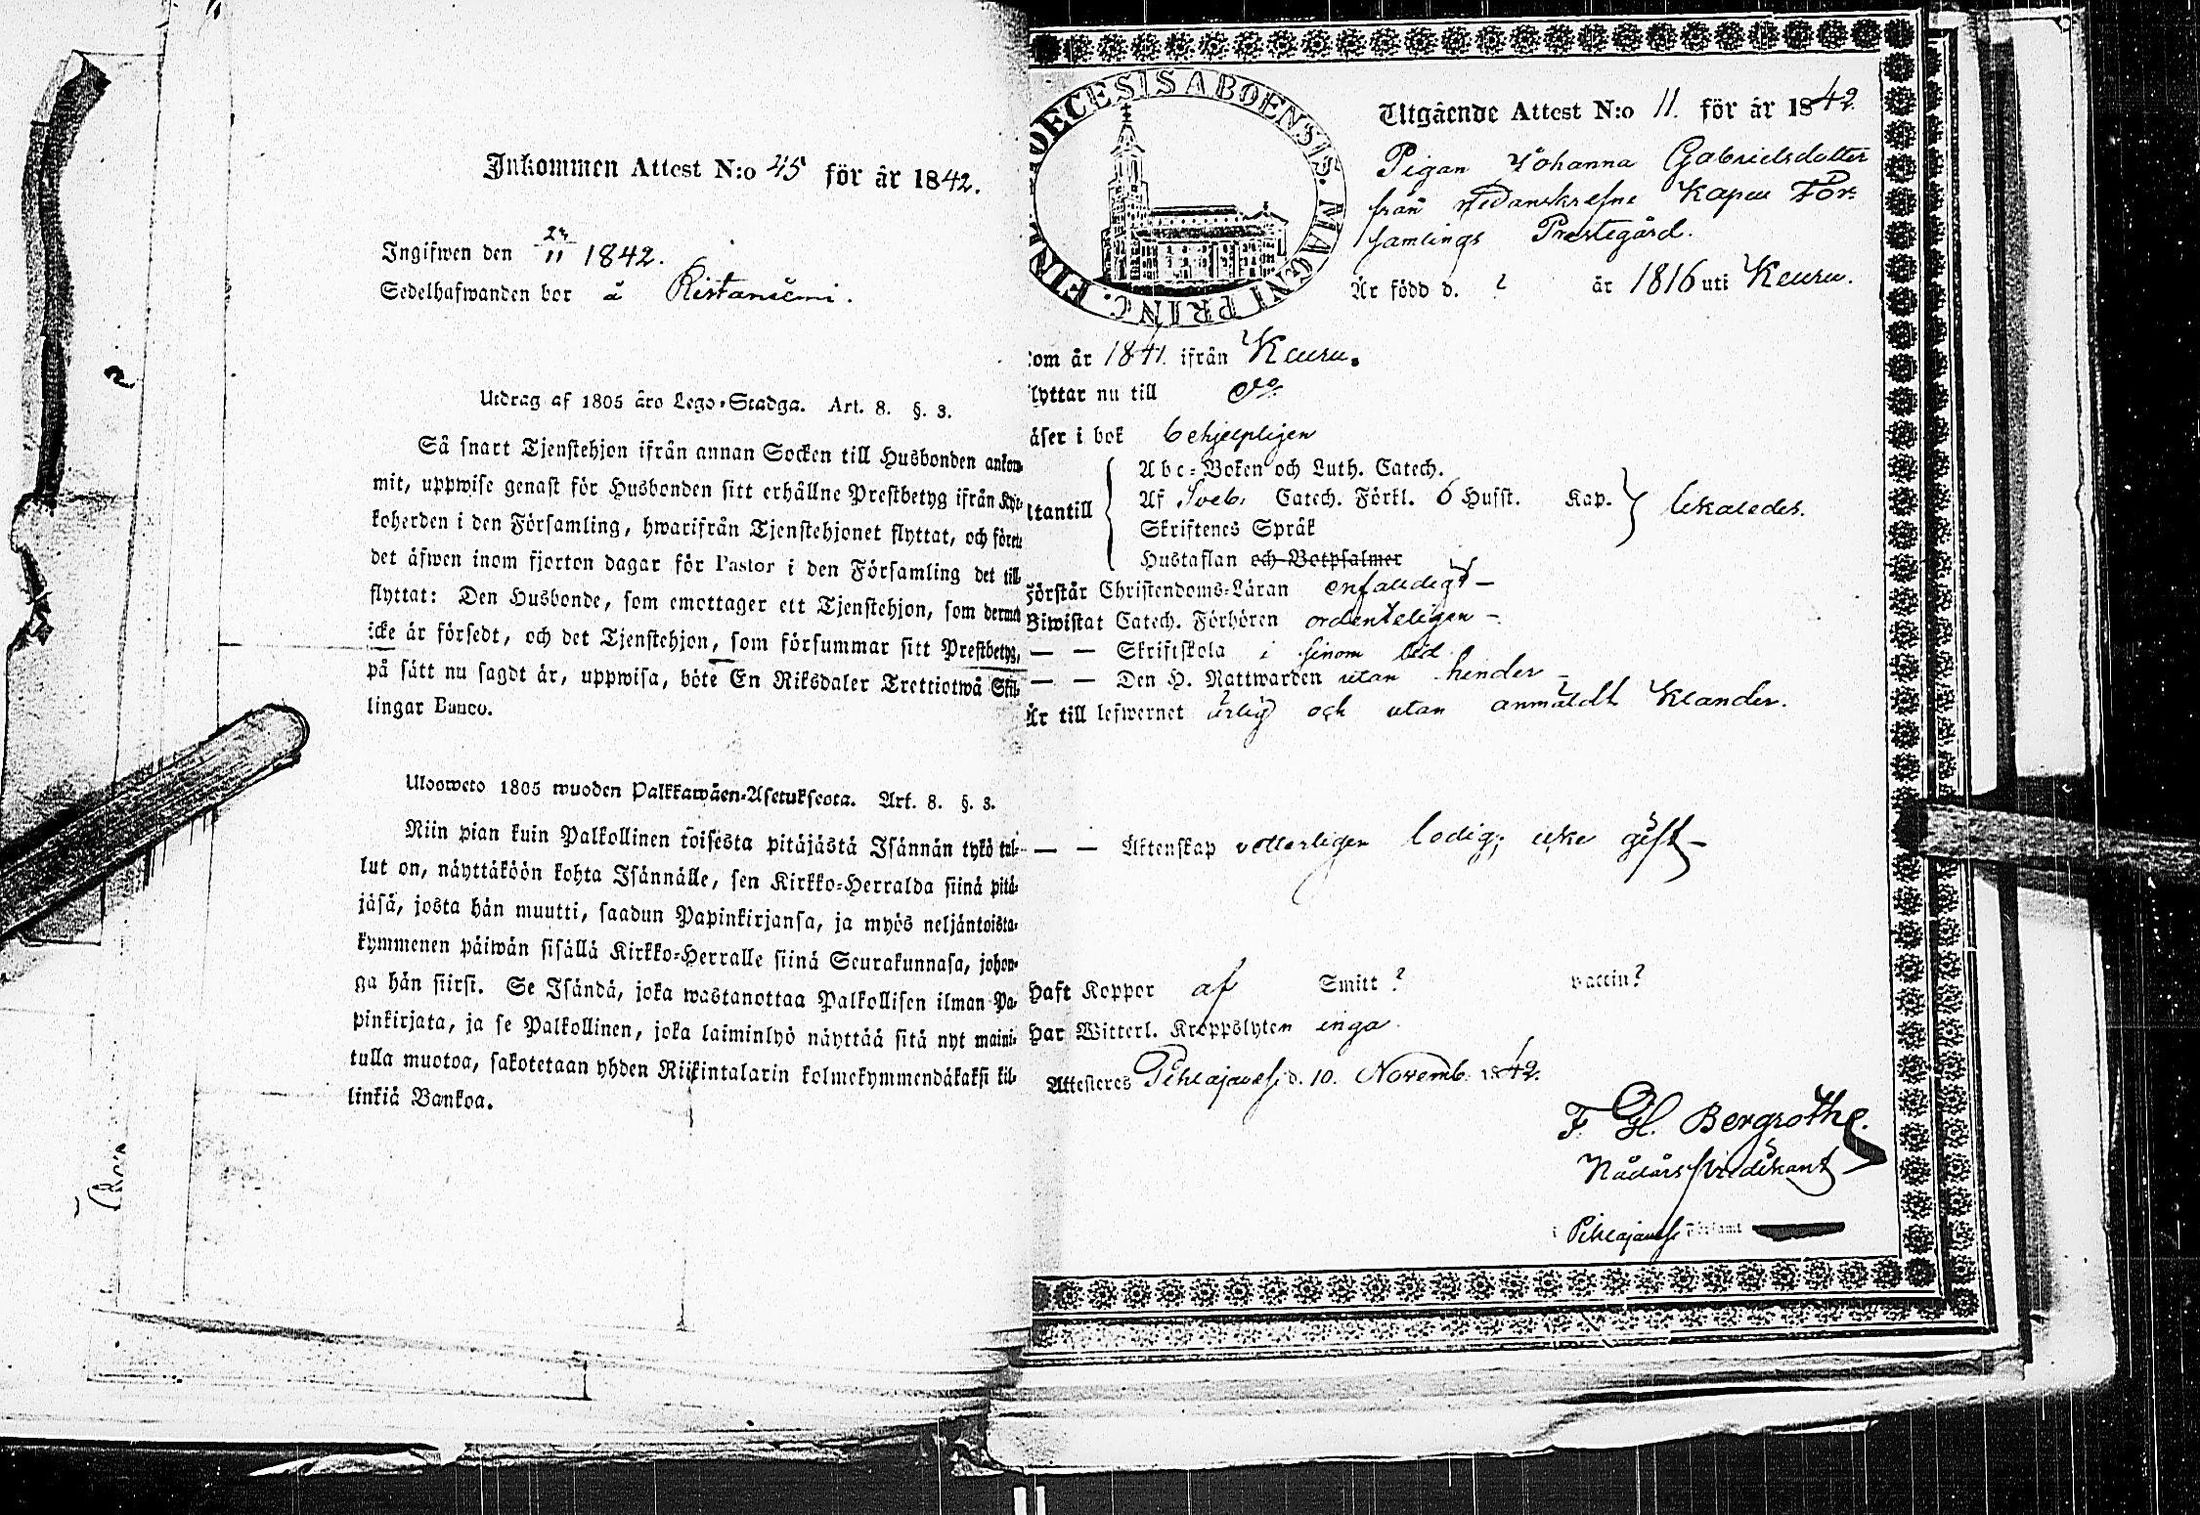 Inkommen Attest N:o 45 för år 1842.
Ingifwen den 24/11 1842.
Sedelhafwanden bor å Ristaniemi.
Utdrag af 1805 års Lego-Stadga. Art. 8. §. 3.
Så snart Tjenstehjon ifrån annan Socken till Husbonden ankom-
mit, uppwise genast för Husbonden sitt erhållne Prestbetyg ifrån Kyr-
koherden i den Församling, hwarifrån Tjenstehjonet flyttat, och förete
det äfwen inom fjorton dagar för Pastor i den Församling det till-
flyttat: Den Husbonde, som emottager ett Tjenstehjon, som dermed
icke är försedt, och det Tjenstehjon, som försummar sitt Prestbetyg,
på sätt nu sagdt är, uppwisa, böte En Riksdaler Trettiotwå Skil-
lingar Banco.
Ulosweto 1805 wuoden Palkkawäen-Asetuksesta. Art. 8. §. 3.
Niin pian kuin Palkollinen toisesta pitäjästä Isännän tykö tul-
lut on, näyttäköön kohta Isännälle, sen Kirkko-Herralda siinä pitä-
jäsä, josta hän muutti, saadun Papinkirjansa, ja myös neljäntoista-
kymmenen päiwän sisällä Kirkko-Herralle siinä Seurakunnasa, johon-
ga hän siirsi. Se Isändä, joka wastanottaa Palkollisen ilman Pa-
pinkirjata, ja se Palkollinen, joka laiminlyö näyttää sitä nyt maini-
tulla muotoa, sakotetaan yhden Riikintalarin kolmekymmendäkaksi kil-
linkiä Bankoa.
DIOECESIS ABOENSIS. MAGNI PRINC. FINL.
Utgående Attest N:o 11. för år 1842
Pigan Johanna Gabrielsdotter
från nedanskrefne Kapell För-
samlings Prestegård.
Är född d. ? år 1816 uti Keuru.
om år 1841. ifrån Keuru.
lyttar nu till do.
äser i bok behjelpligen
Abc-Boken och Luth. Catech.
Af Sveb. Catech. Förkl. 6 Hufst. Kap.
tantill
Skriftenes Språk
Hustaflan och Botpsalmer
Förstår Christendoms-Läran enfaldigt
Biwistat Catech. Förhören ordenteligen
— — Skriftskola i sinom tid
— — Den H. Nattwarden utan hinder
Är till lefwernet ärlig och utan anmäldt klander.
— — Äktenskap vetterligen ledig; icke gift
Haft Koppor af Smitt ? vaccin ?
Har Witterl. Kroppslyten inga.
Attesteres Pihlajavesi d. 10. Novemb. 1842.
F. H. Bergroth
Nådårs Predikant
i Pihlajavesi Församl